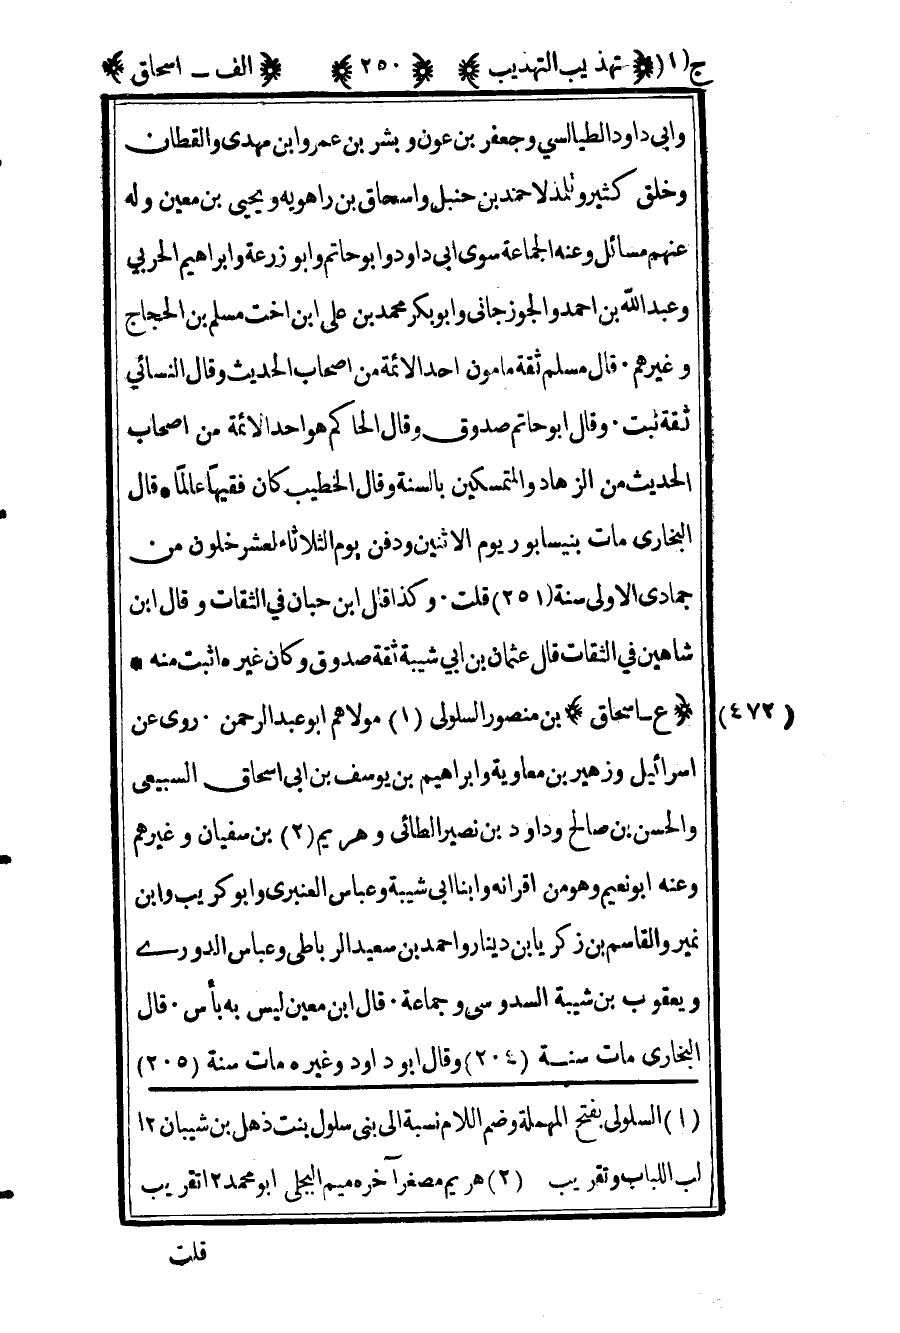 ج(١) ﴿ تهذيب التهذيب ﴾ ﴿ ٢٥٠ ﴾ ﴿ الف ــ اسحاق ﴾
وابى داود الطيالسي وجعفر بن عون وبشر بن عمر وابن مهدى والقطان
وخلق كثير وتلمذ لاحمد بن حنبل واسحاق بن راهويه ويحيى بن معين وله
عنهم مسائل وعنه الجماعة سوى ابى داود وابو حاتم وابو زرعة وابراهيم الحربي
وعبد الله بن احمد والجوزجانى وابو بكر محمد بن على ابن اخت مسلم بن الحجاج
وغيرهم ٠ قال مسلم ثقة مامون احد الائمة من اصحاب الحديث وقال النسائي
ثقة ثبت ٠ وقال ابو حاتم صدوق وقال الحاكم هو احد الائمة من اصحاب
الحديث من الزهاد والمتمسكين بالسنة وقال الخطيب كان فقيهاً عالماً • قال
البخارى مات بنيسابور يوم الاثنين ودفن يوم الثلاثاء لعشر خلون من
جمادى الاولى سنة (٢٥١) قلت ٠ وكذا قال ابن حبان في الثقات وقال ابن
شاهين في الثقات قال عثمان بن ابي شيبة ثقة صدوق وكان غيره اثبت منه •
﴿ ع ــ اسحاق ﴾ بن منصور السلولى (١) مولاهم ابو عبد الرحمن ٠ روى عن (٤٧٢)
اسرائيل وزهير بن معاوية وابراهيم بن يوسف بن ابى اسحاق السبيعى
والحسن بن صالح وداود بن نصير الطائى وهريم (٢) بن سفيان وغيرهم
وعنه ابو نعيم وهو من اقرانه وابنا ابى شيبة وعباس العنبرى وابو كريب وابن
نمير والقاسم بن زكريا بن دينار واحمد بن سعيد الرباطى وعباس الدورے
ويعقوب بن شيبة السدوسى وجماعة ٠ قال ابن معين ليس به بأس ٠ قال
البخارى مات سنة (٢٠٤) وقال ابو داود وغيره مات سنة (٢٠٥)
(١) السلولى بفتح المهملة وضم اللام نسبة الى بنى سلول بنت ذهل بن شيبان ١٢
لب اللباب وتقريب (٢) هريم مصغراً آخره ميم البجلى ابو محمد ١٢ تقريب
قلت